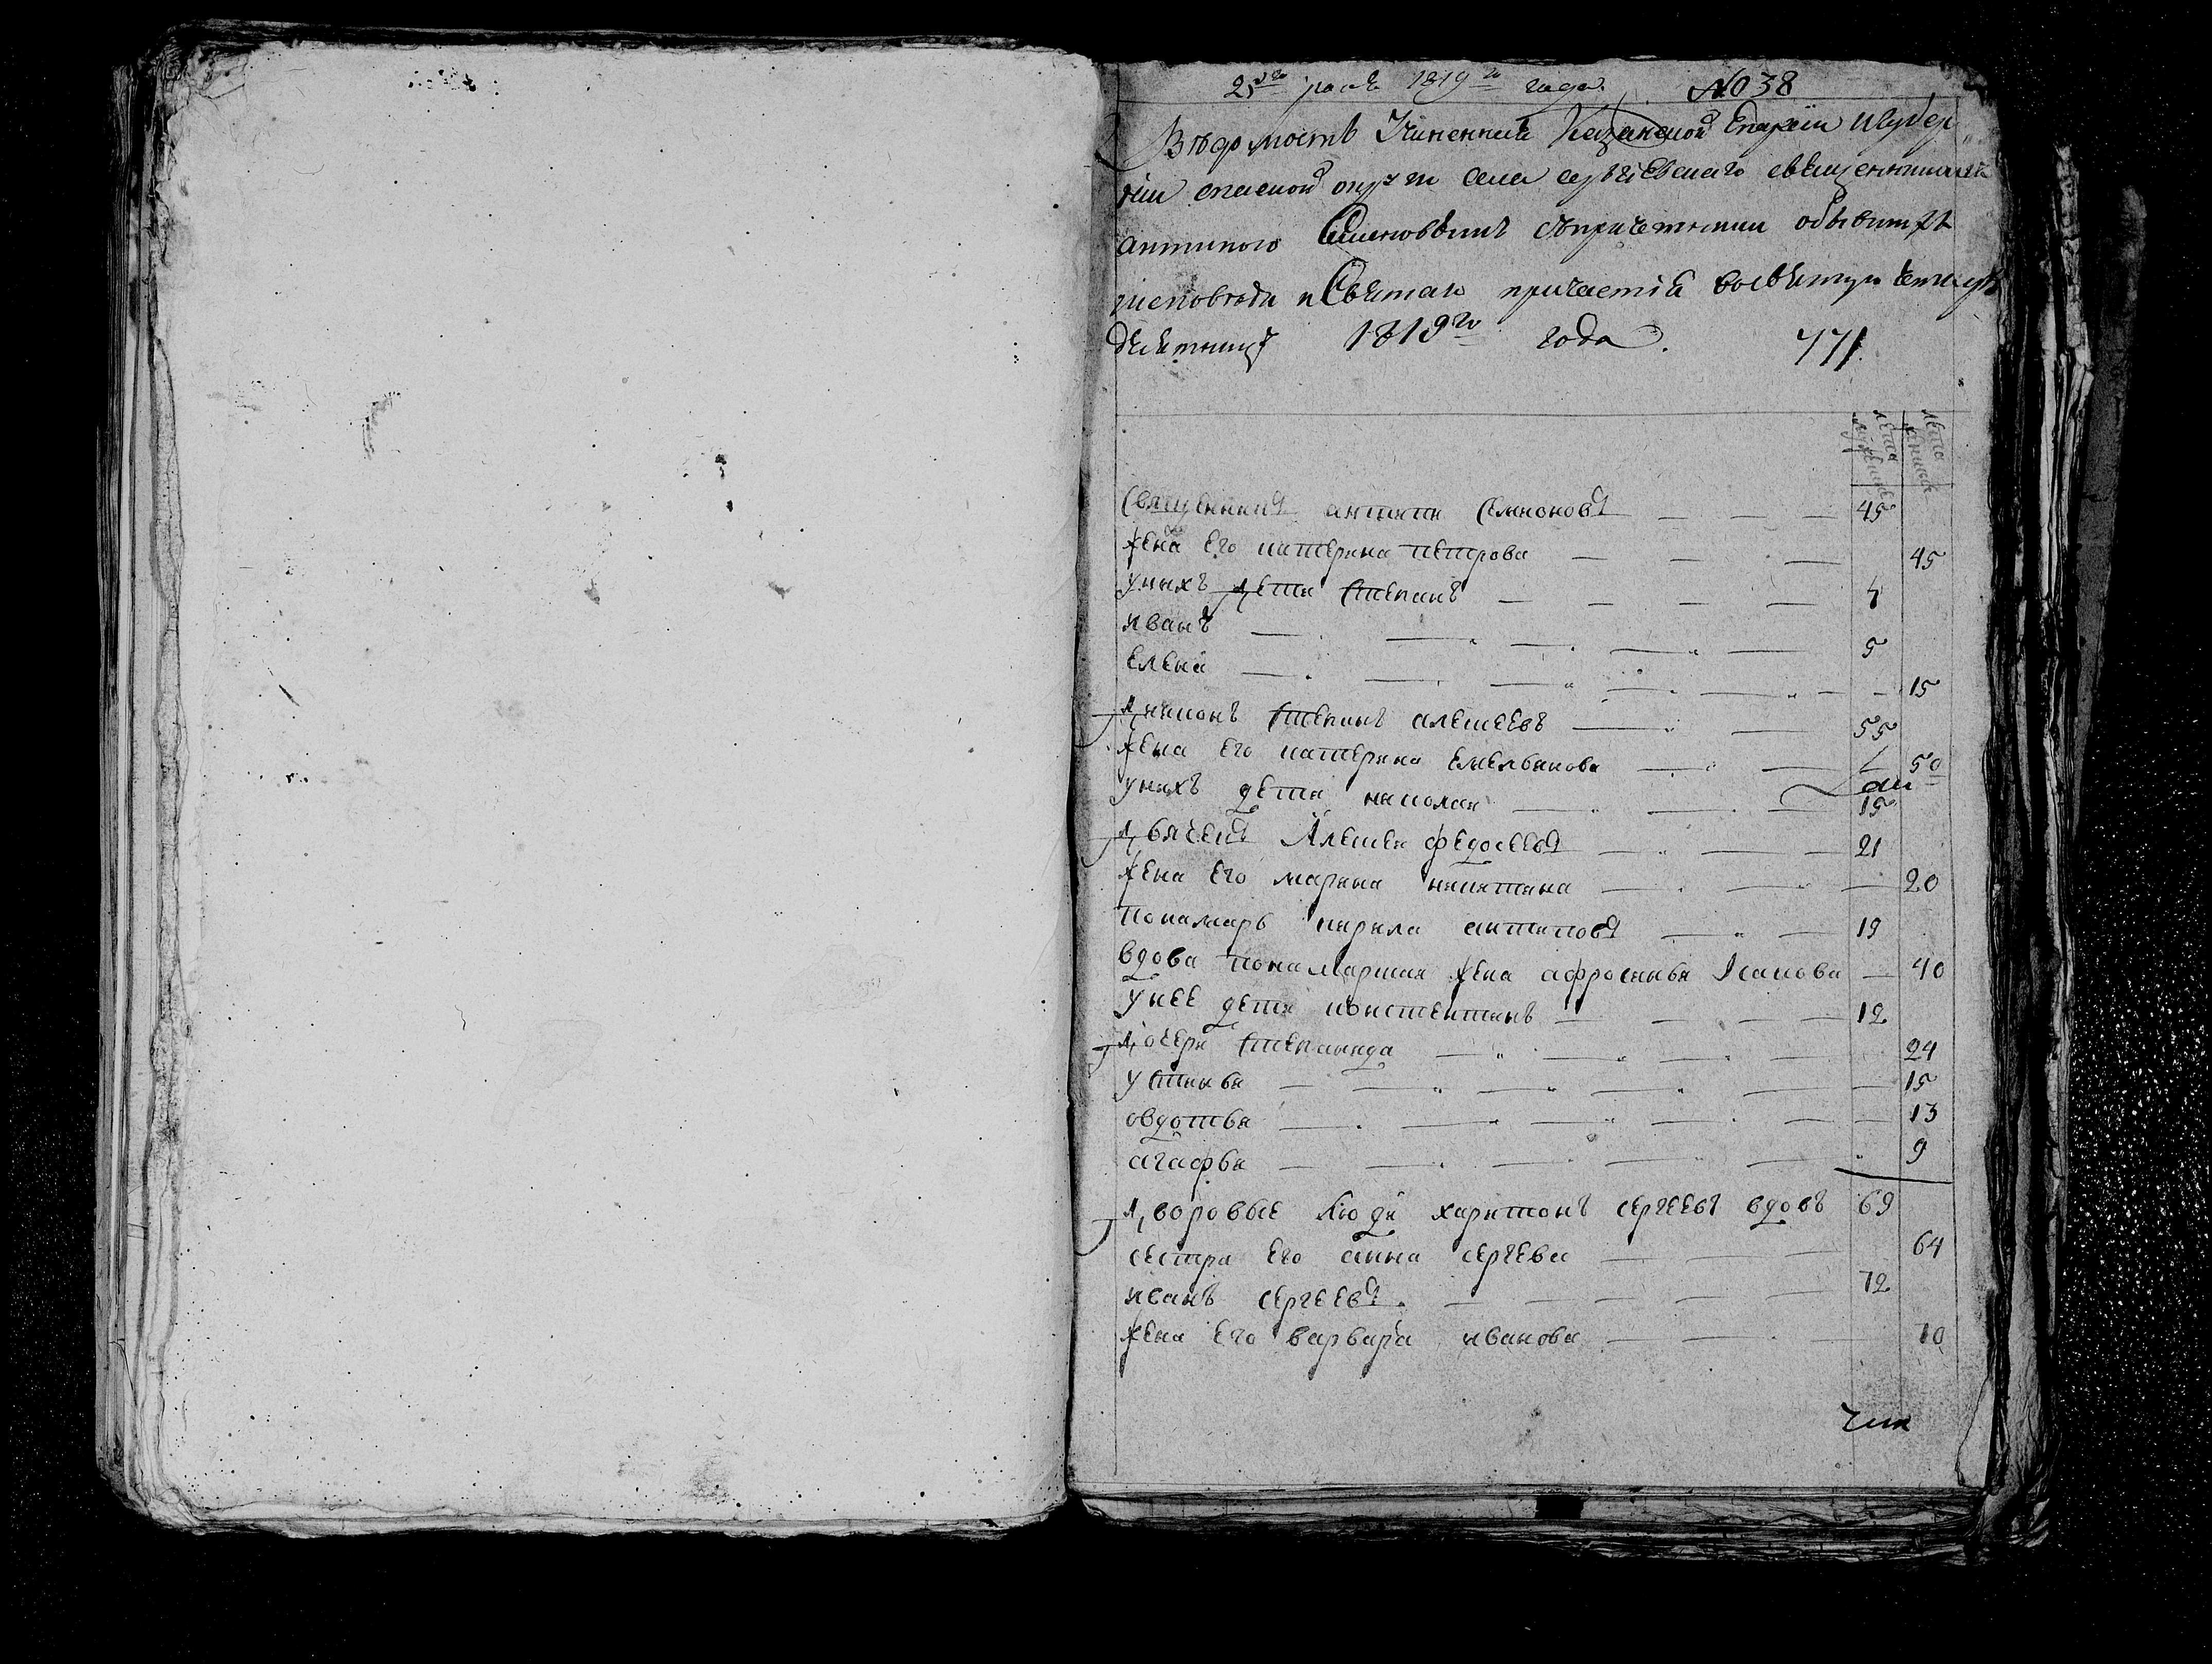 25го 1819го года. №038
Ведомость Учиненная Казанской Епархии и губер
нии спаской округи села сергиевскаго священникомъ
антипою Симеоновымъ съ причетники обывшихъ
исповеди и Святаго причастия во святую четыре
десятницу 1819го года. 471
лета мужеска лета женска
Священникъ антипъ Симионовъ 45
жена Его катерина петрова 45
у нихъ дети Степанъ 4
иванъ 5
Елена 15
диконъ Степанъ алексеевъ 55
жена Его катерина Емельянова 50
у нихъ дети николай 15
дьячекъ Алексей федосеевъ 21
жена Его марина никитина 20
понамарь кирила антиповъ 19
вдова понамарская жена афросинья Исакова 40
у нее дети констентинъ 12
дочери Степанида 24
устинья 15
овдотья 13
агафья 9
дворовые люди харитонъ сергеевъ вдовъ 69
сестра Его анна сергева 64
иванъ сергеевъ 72
жена Его варвара иванова 70